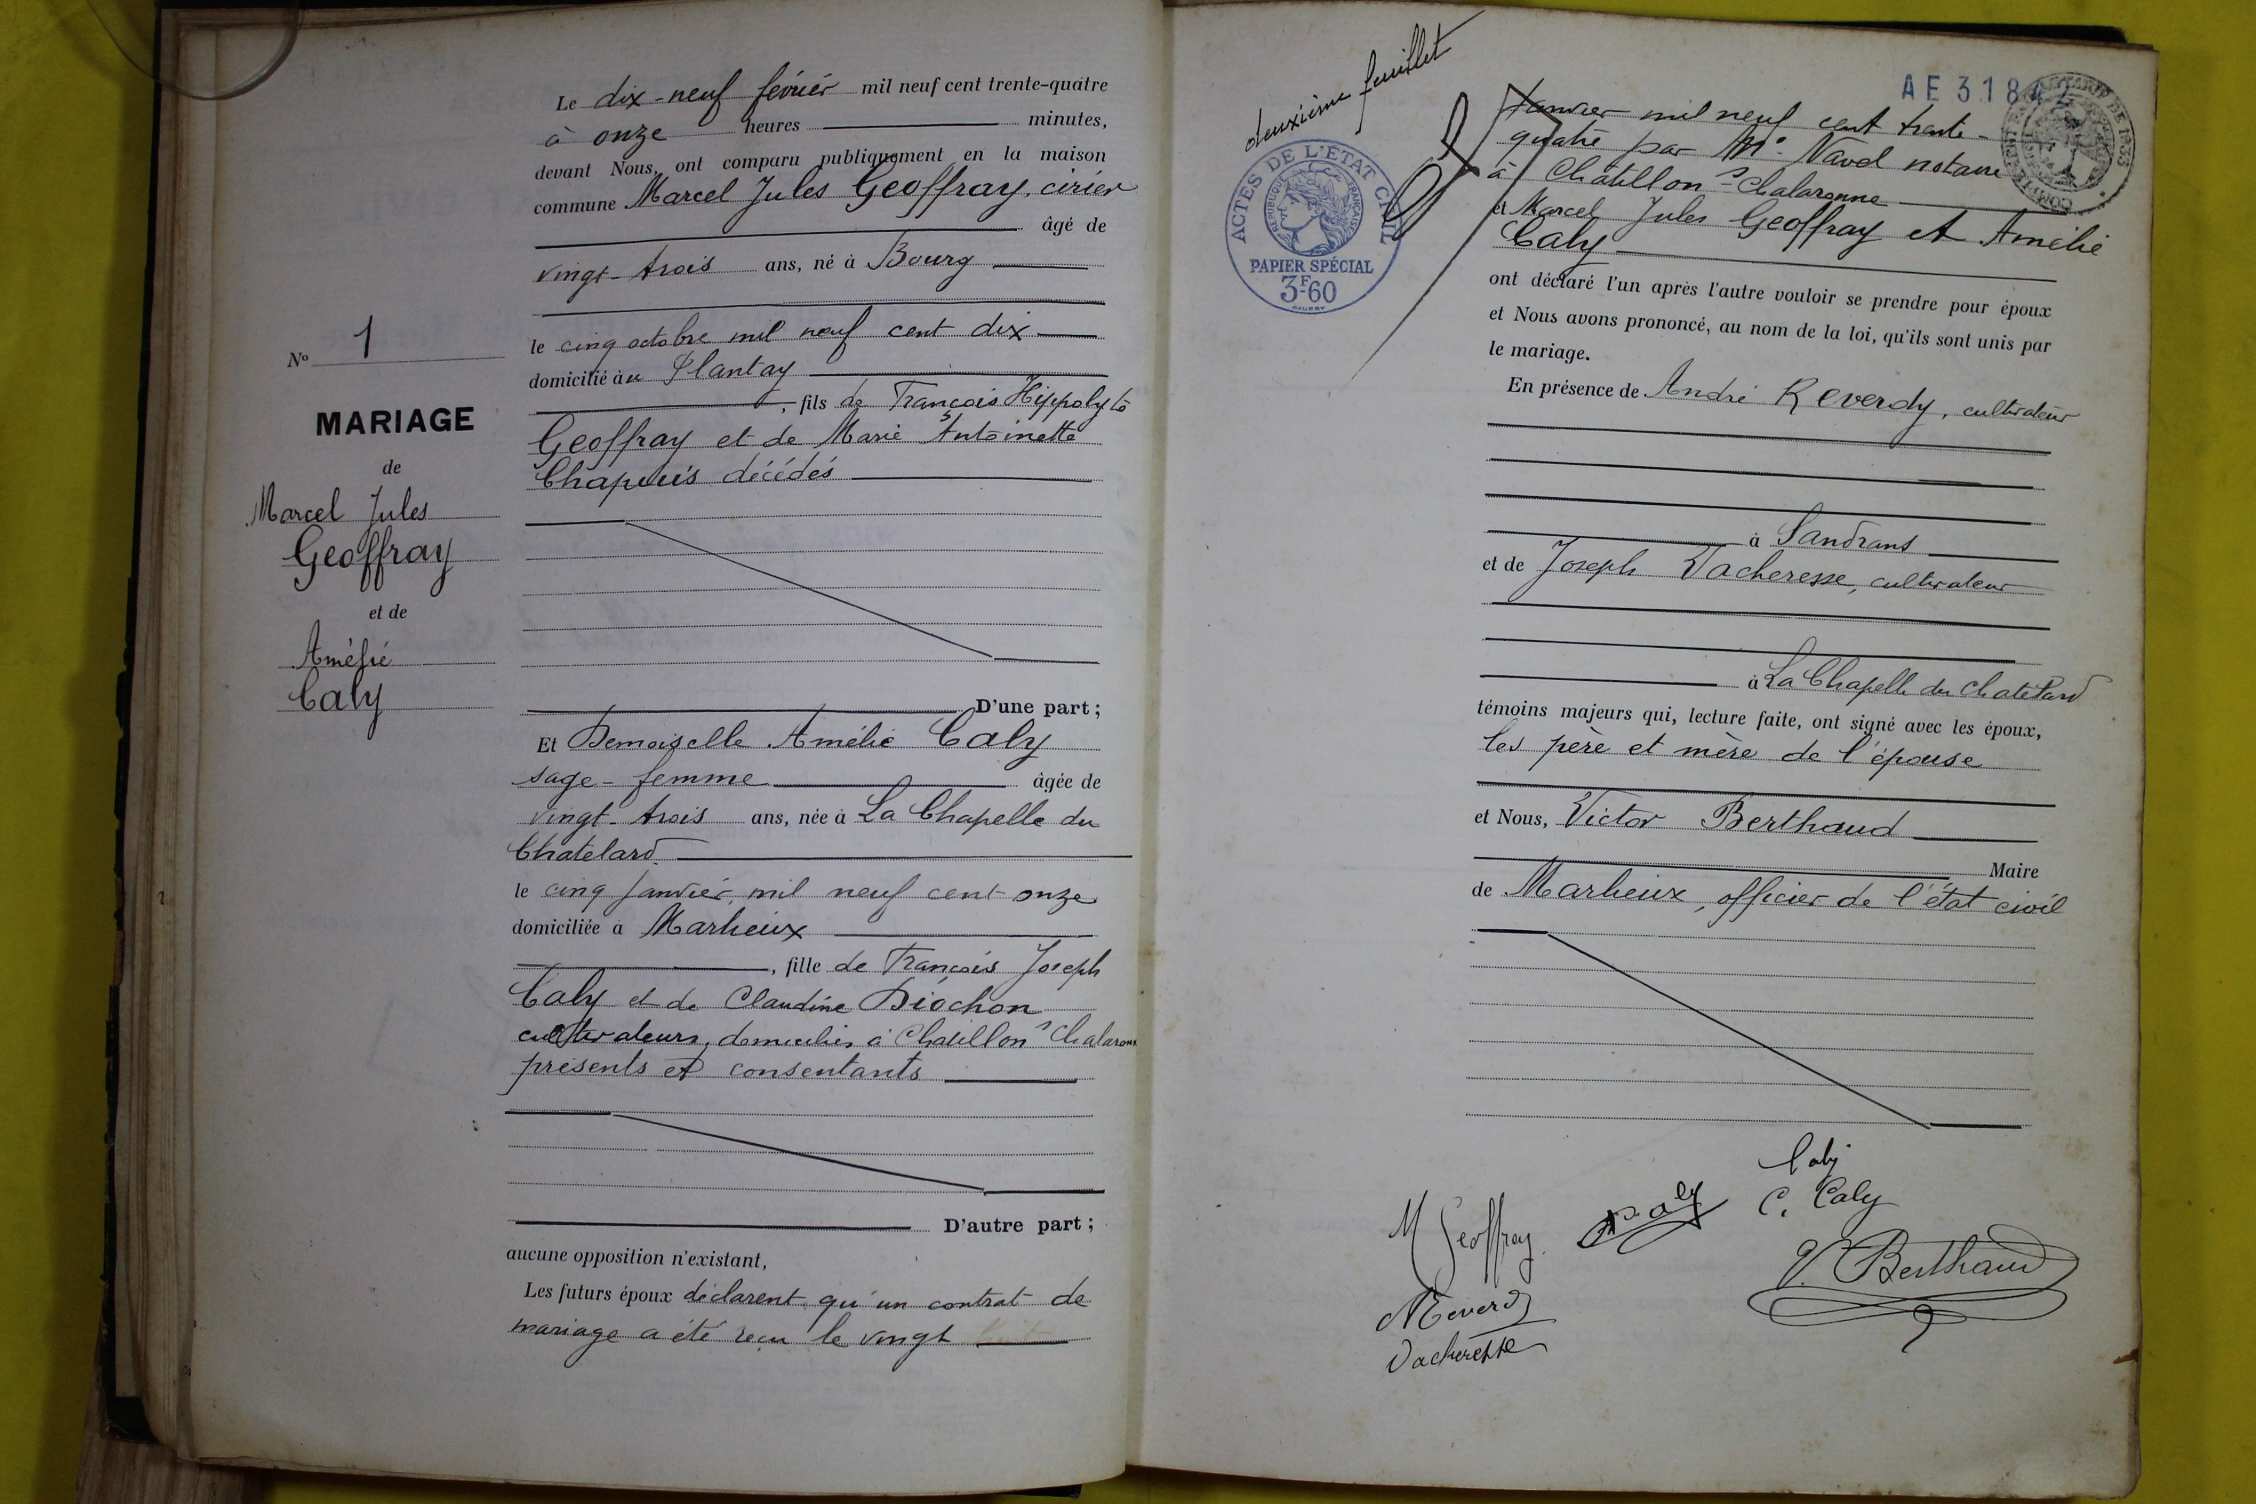 Le dix-neuf février mil neuf cent trente-quatre
à onze heures minutes,
devant Nous, ont comparu publiquement en la maison
commune Marcel Jules Geoffray, cirier
âgé de
vingt-trois ans, né à Bourg
le cinq octobre mil neuf cent dix
domicilié au Plantay
, fils de François Hippolyte
Geoffray et de Marie Antoinette
Chapuis décédés
D'une part ;
Et Demoiselle Amélie Caly
sage-femme âgée de
vingt-trois ans, née à La Chapelle du
Chatelard
le cinq janvier mil neuf cent onze
domiciliée à Marlieux
, fille de François Joseph
Caly et de Claudine Diochon
cultivateurs, domiciliés à Chatillon s Chalaronne
présents et consentants
D'autre part ;
aucune opposition n'existant,
Les futurs époux déclarent qu'un contrat de
mariage a été reçu le vingt
No 1
MARIAGE
de
Marcel Jules
Geoffray
et de
Amélie
Caly
deuxième feuillet
ACTES DE L'ÉTAT CIVIL
RÉPUBLIQUE FRANÇAISE
PAPIER SPÉCIAL
3F60
AE 3184
Janvier mil neuf cent trente-
quatre par Me Navel notaire
à Chatillon s Chalaronne
et Marcel Jules Geoffray et Amélie
Caly
ont déclaré l'un après l'autre vouloir se prendre pour époux
et Nous avons prononcé, au nom de la loi, qu'ils sont unis par
le mariage.
En présence de André Reverdy, cultivateur
à Sandrans
et de Joseph Vacheresse, cultivateur
à La Chapelle du Chatelard
témoins majeurs qui, lecture faite, ont signé avec les époux,
les père et mère de l'épouse
et Nous, Victor Berthaud
Maire
de Marlieux, officier de l'état civil
Caly
M Geoffray
A. Caly
C. Caly
V. Berthaud
Reverdy
Vacheresse